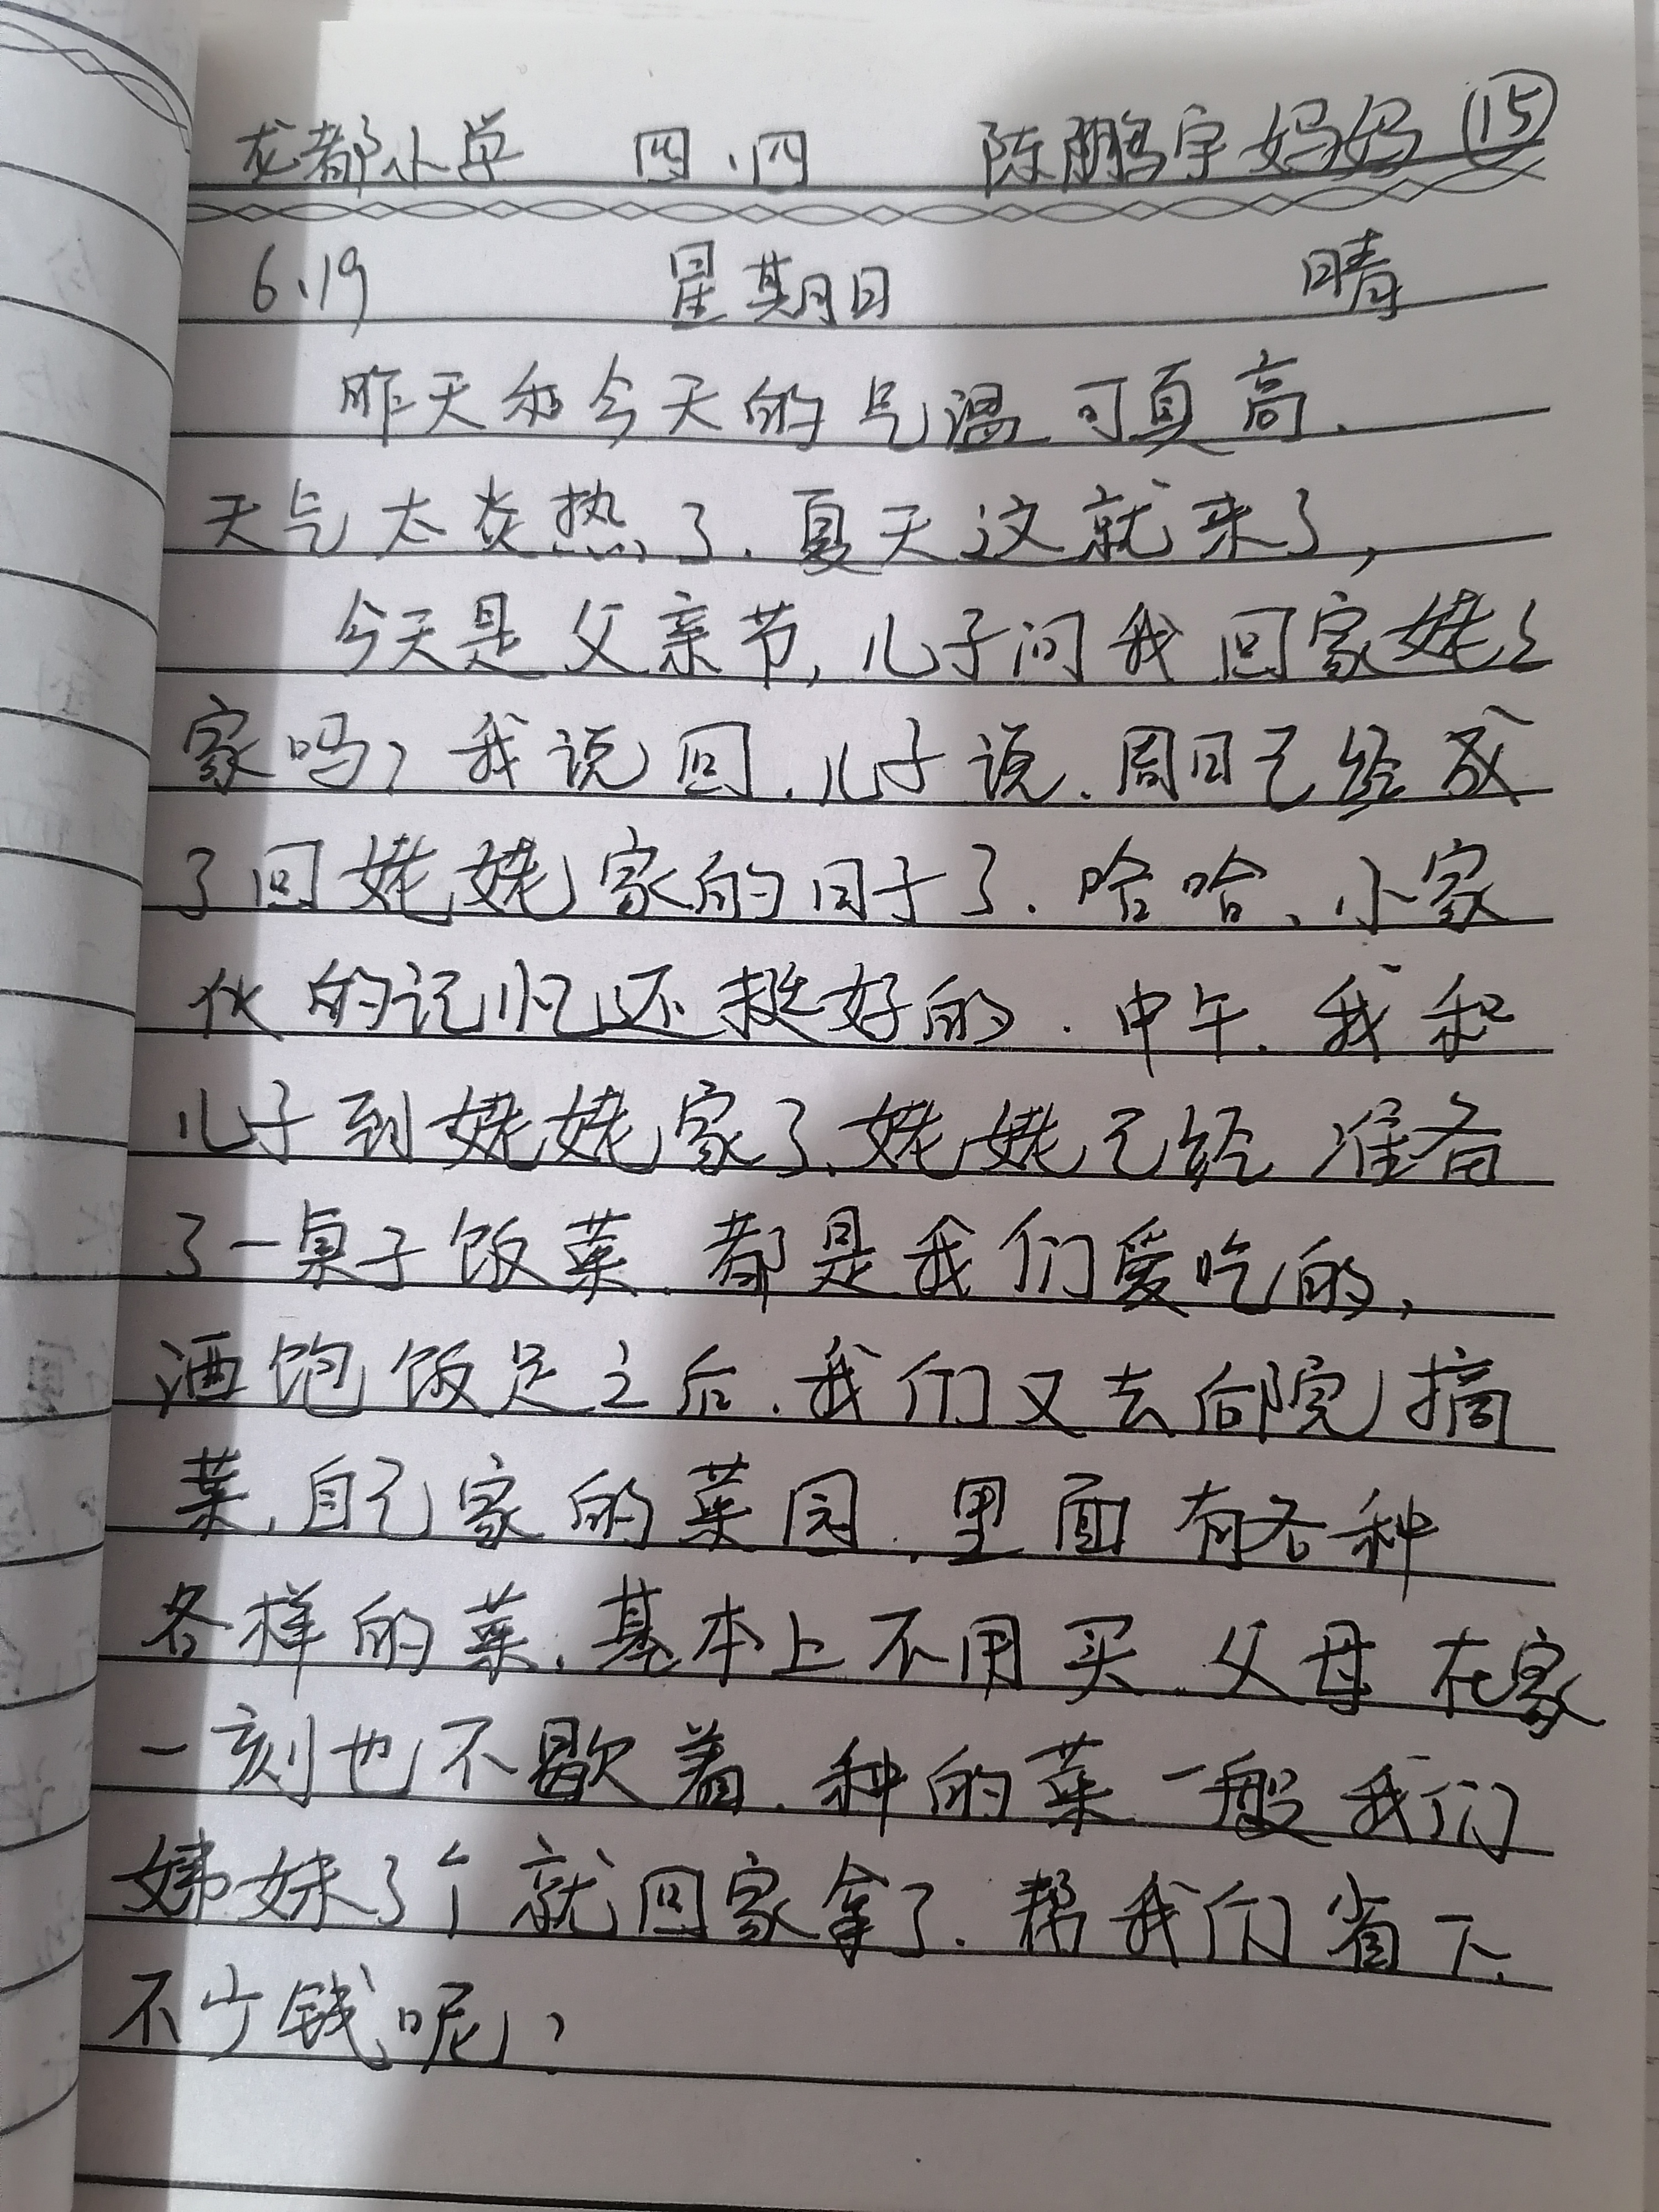 龙都小学 四.四 陈鹏宇妈妈 ⑮
6.19 星期日 晴
昨天和今天的气温可真高.
天气太炎热了.夏天这就来了,
今天是父亲节,儿子问我回家姥姥
家吗?我说回.儿子说.周日已经成
了回姥姥家的日子了.哈哈、小家
伙的记忆还挺好的.中午.我和
儿子到姥姥家了、姥姥已经准备
了一桌子饭菜.都是我们爱吃的,
酒饱饭足之后.我们又去后院摘
菜,自己家的菜园.里面有各种
各样的菜、基本上不用买.父母在家
一刻也不歇着.种的菜一般我们
姊妹3个就回家拿了.帮我们省下
不少钱呢,